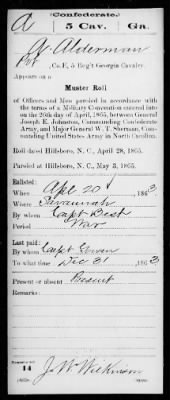 (Confederate.)
A 5 Cav. Ga.
A Alderman
Pvt, Co. F, 5 Reg't Georgia Cavalry.
Appears on a
Muster Roll
of Officers and Men paroled in accordance with
the terms of a Military Convention entered into
on the 26th day of April, 1865, between General
Joseph E. Johnston, Commanding Confederate
Army, and Major General W. T. Sherman, Commanding
United States Army in North Carolina.
Roll dated Hillsboro, N. C., April 28, 1865.
Paroled at Hillsboro, N. C., May 3, 1865.
Enlisted:
When Apl 20, 1863
Where Savannah
By whom Capt Best
Period War
Last paid:
By whom Capt
To what time Dec 31, 1863
Present or absent Present
Remarks:
14
J. W. Wilkinson